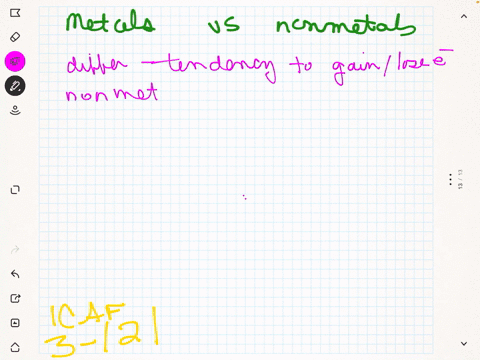 Metals vs nonmetals
differ - tendency to gain/lose e⁻
nonmet
1C AF
3-121
13 / 13